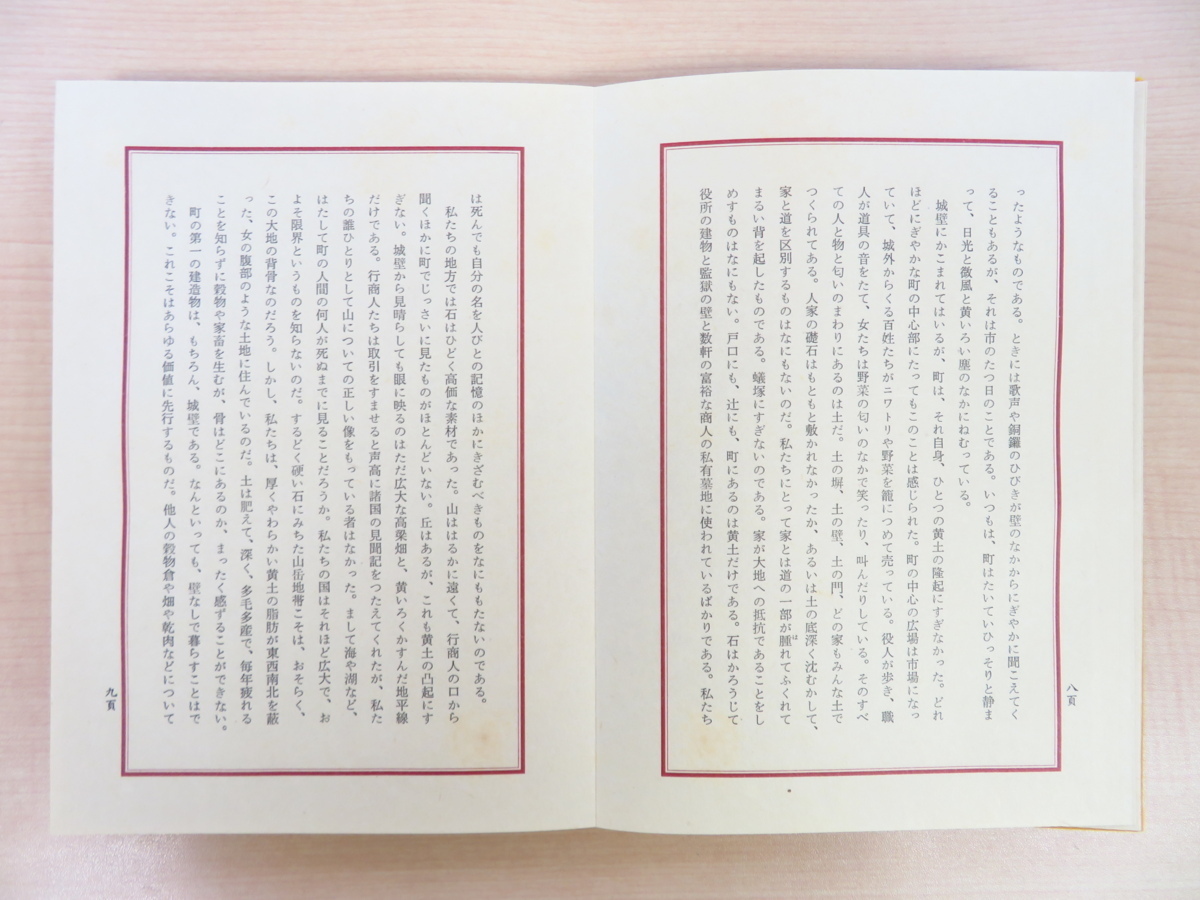 ったようなものである。ときには歌声や銅鑼のひびきが壁のなかからにぎやかに聞こえてく
ることもあるが、それは市のたつ日のことである。いつもは、町はたいていひっそりと静ま
って、日光と微風と黄いろい塵のなかにねむっている。
城壁にかこまれてはいるが、町は、それ自身、ひとつの黄土の隆起にすぎなかった。どれ
ほどにぎやかな町の中心部にたってもこのことは感じられた。町の中心の広場は市場になっ
ていて、城外からくる百姓たちがニワトリや野菜を籠につめて売っている。役人が歩き、職
人が道具の音をたて、女たちは野菜の匂いのなかで笑ったり、叫んだりしている。そのすべ
ての人と物と匂いのまわりにあるのは土だ。土の塀、土の壁、土の門、どの家もみんな土で
つくられてある。人家の礎石はもともと敷かれなかったか、あるいは土の底深く沈むかして、
家と道を区別するものはなにもないのだ。私たちにとって家とは道の一部が腫れてふくれて
まるい背を起したものである。蟻塚にすぎないのである。家が大地への抵抗であることをし
めすものはなにもない。戸口にも、辻にも、町にあるのは黄土だけである。石はかろうじて
役所の建物と監獄の壁と数軒の富裕な商人の私有墓地に使われているばかりである。私たち
八頁
は死んでも自分の名を人びとの記憶のほかにきざむべきものをなにももたないのである。
私たちの地方では石はひどく高価な素材であった。山ははるかに遠くて、行商人の口から
聞くほかに町でじっさいに見たものがほとんどいない。丘はあるが、これも黄土の凸起にす
ぎない。城壁から見晴らしても眼に映るのはただ広大な高粱畑と、黄いろくかすんだ地平線
だけである。行商人たちは取引をすませると声高に諸国の見聞記をつたえてくれたが、私た
ちの誰ひとりとして山についての正しい像をもっている者はなかった。まして海や湖など、
はたして町の人間の何人が死ぬまでに見ることだろうか。私たちの国はそれほど広大で、お
よそ限界というものを知らないのだ。するどく硬い石にみちた山岳地帯こそは、おそらく、
この大地の背骨なのだろう。しかし、私たちは、厚くやわらかい黄土の脂肪が東西南北を蔽
った、女の腹部のような土地に住んでいるのだ。土は肥えて、深く、多毛多産で、毎年疲れる
ことを知らずに穀物や家畜を生むが、骨はどこにあるのか、まったく感ずることができない。
町の第一の建造物は、もちろん、城壁である。なんといっても、壁なしで暮らすことはで
きない。これこそはあらゆる価値に先行するものだ。他人の穀物倉や畑や乾肉などについて
九頁